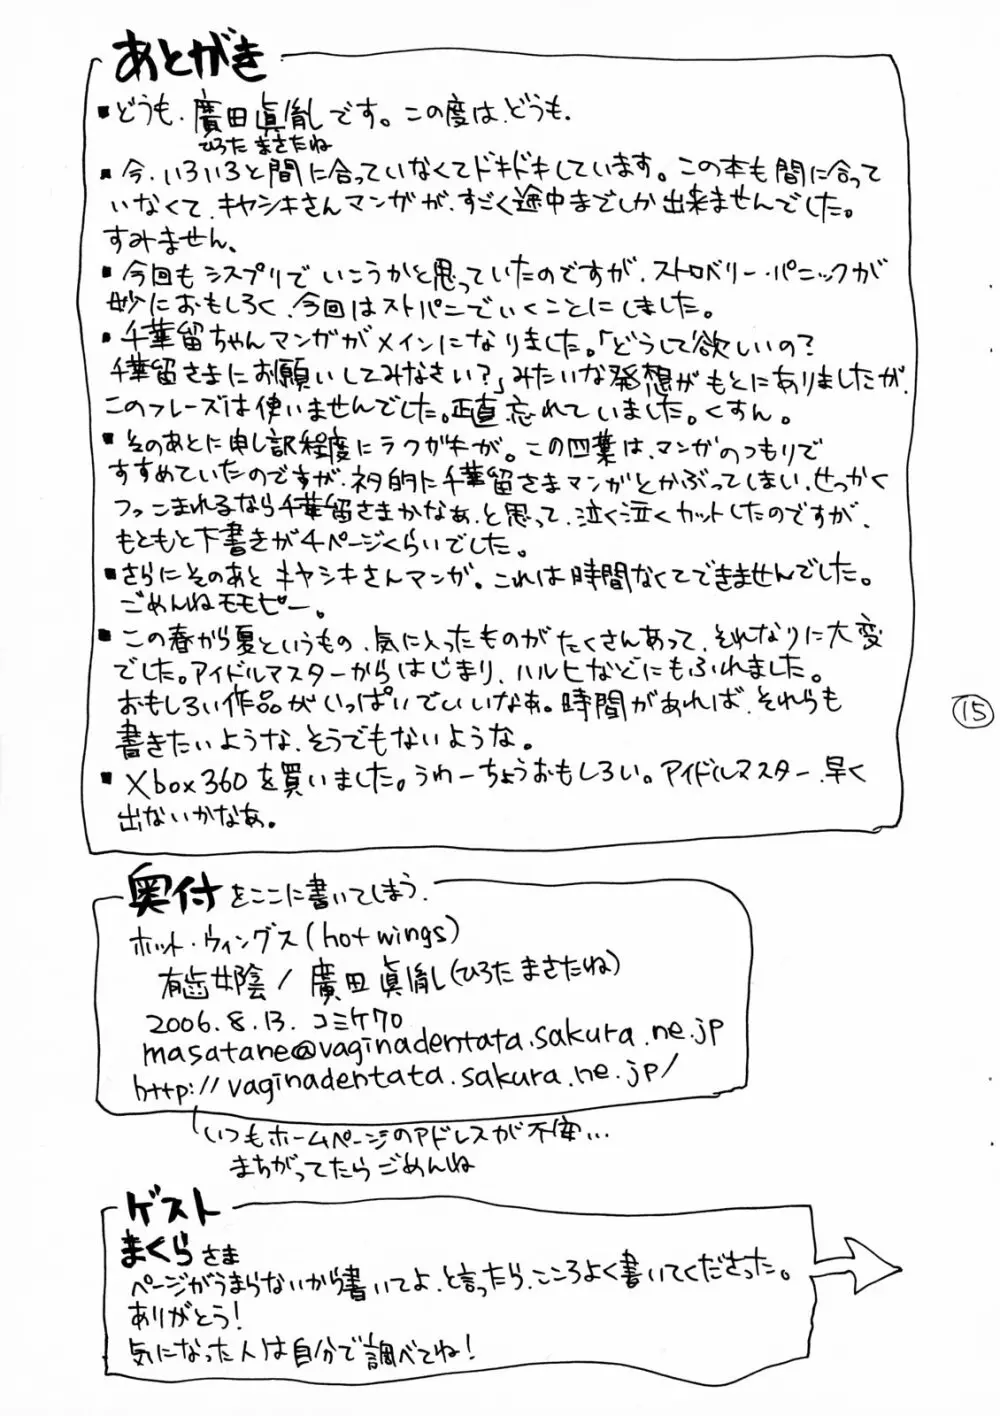 あとがき
▪どうも、廣田眞胤です。この度は、どうも。
ひろた まさたね
▪今、いろいろと間に合っていなくてドキドキしています。この本も間に合って
いなくて、キヤシキさんマンガが、すごく途中までしか出来ませんでした。
すみません、
▪今回もシスプリでいこうかと思っていたのですが、ストロベリー・パニックが
妙におもしろく、今回はストパニでいくことにしました。
▪千華留ちゃんマンガがメインになりました。「どうして欲しいの?
千華留さまにお願いしてみなさい?」みたいな発想がもとにありましたが、
このフレーズは使いませんでした。正直忘れていました。くすん。
▪そのあとに申し訳程度にラクガキが。この四葉は、マンガのつもりで
すすめていたのですが、ネタ的に千華留さまマンガとかぶってしまい、せっかく
つっこまれるなら千華留さまかなぁ、と思って、泣く泣くカットしたのですが、
もともと下書きが4ページくらいでした。
▪さらにそのあと キヤシキさんマンガ。これは時間なくてできませんでした。
ごめんねモモピー。
▪この春から夏というもの、気に入ったものがたくさんあって、それなりに大変
でした。アイドルマスターからはじまり、ハルヒなどにもふれました。
おもしろい作品がいっぱいでいいなぁ。時間があれば、それらも
書きたいような、そうでもないような。
▪Xbox360を買いました。うわーちょうおもしろい。アイドルマスター、早く
出ないかなあ。
15
奥付をここに書いてしまう。
ホット・ウィングス(hot wings)
有歯女陰/廣田眞胤(ひろた まさたね)
2006.8.13.コミケ70
masatane@vaginadentata.sakura.ne.jp
http://vaginadentata.sakura.ne.jp/
いつもホームページのアドレスが不安…
まちがってたらごめんね
ゲスト
まくらさま
ページがうまらないから書いてよ、と言ったら、こころよく書いてくださった。
ありがとう!
気になった人は自分で調べてね!